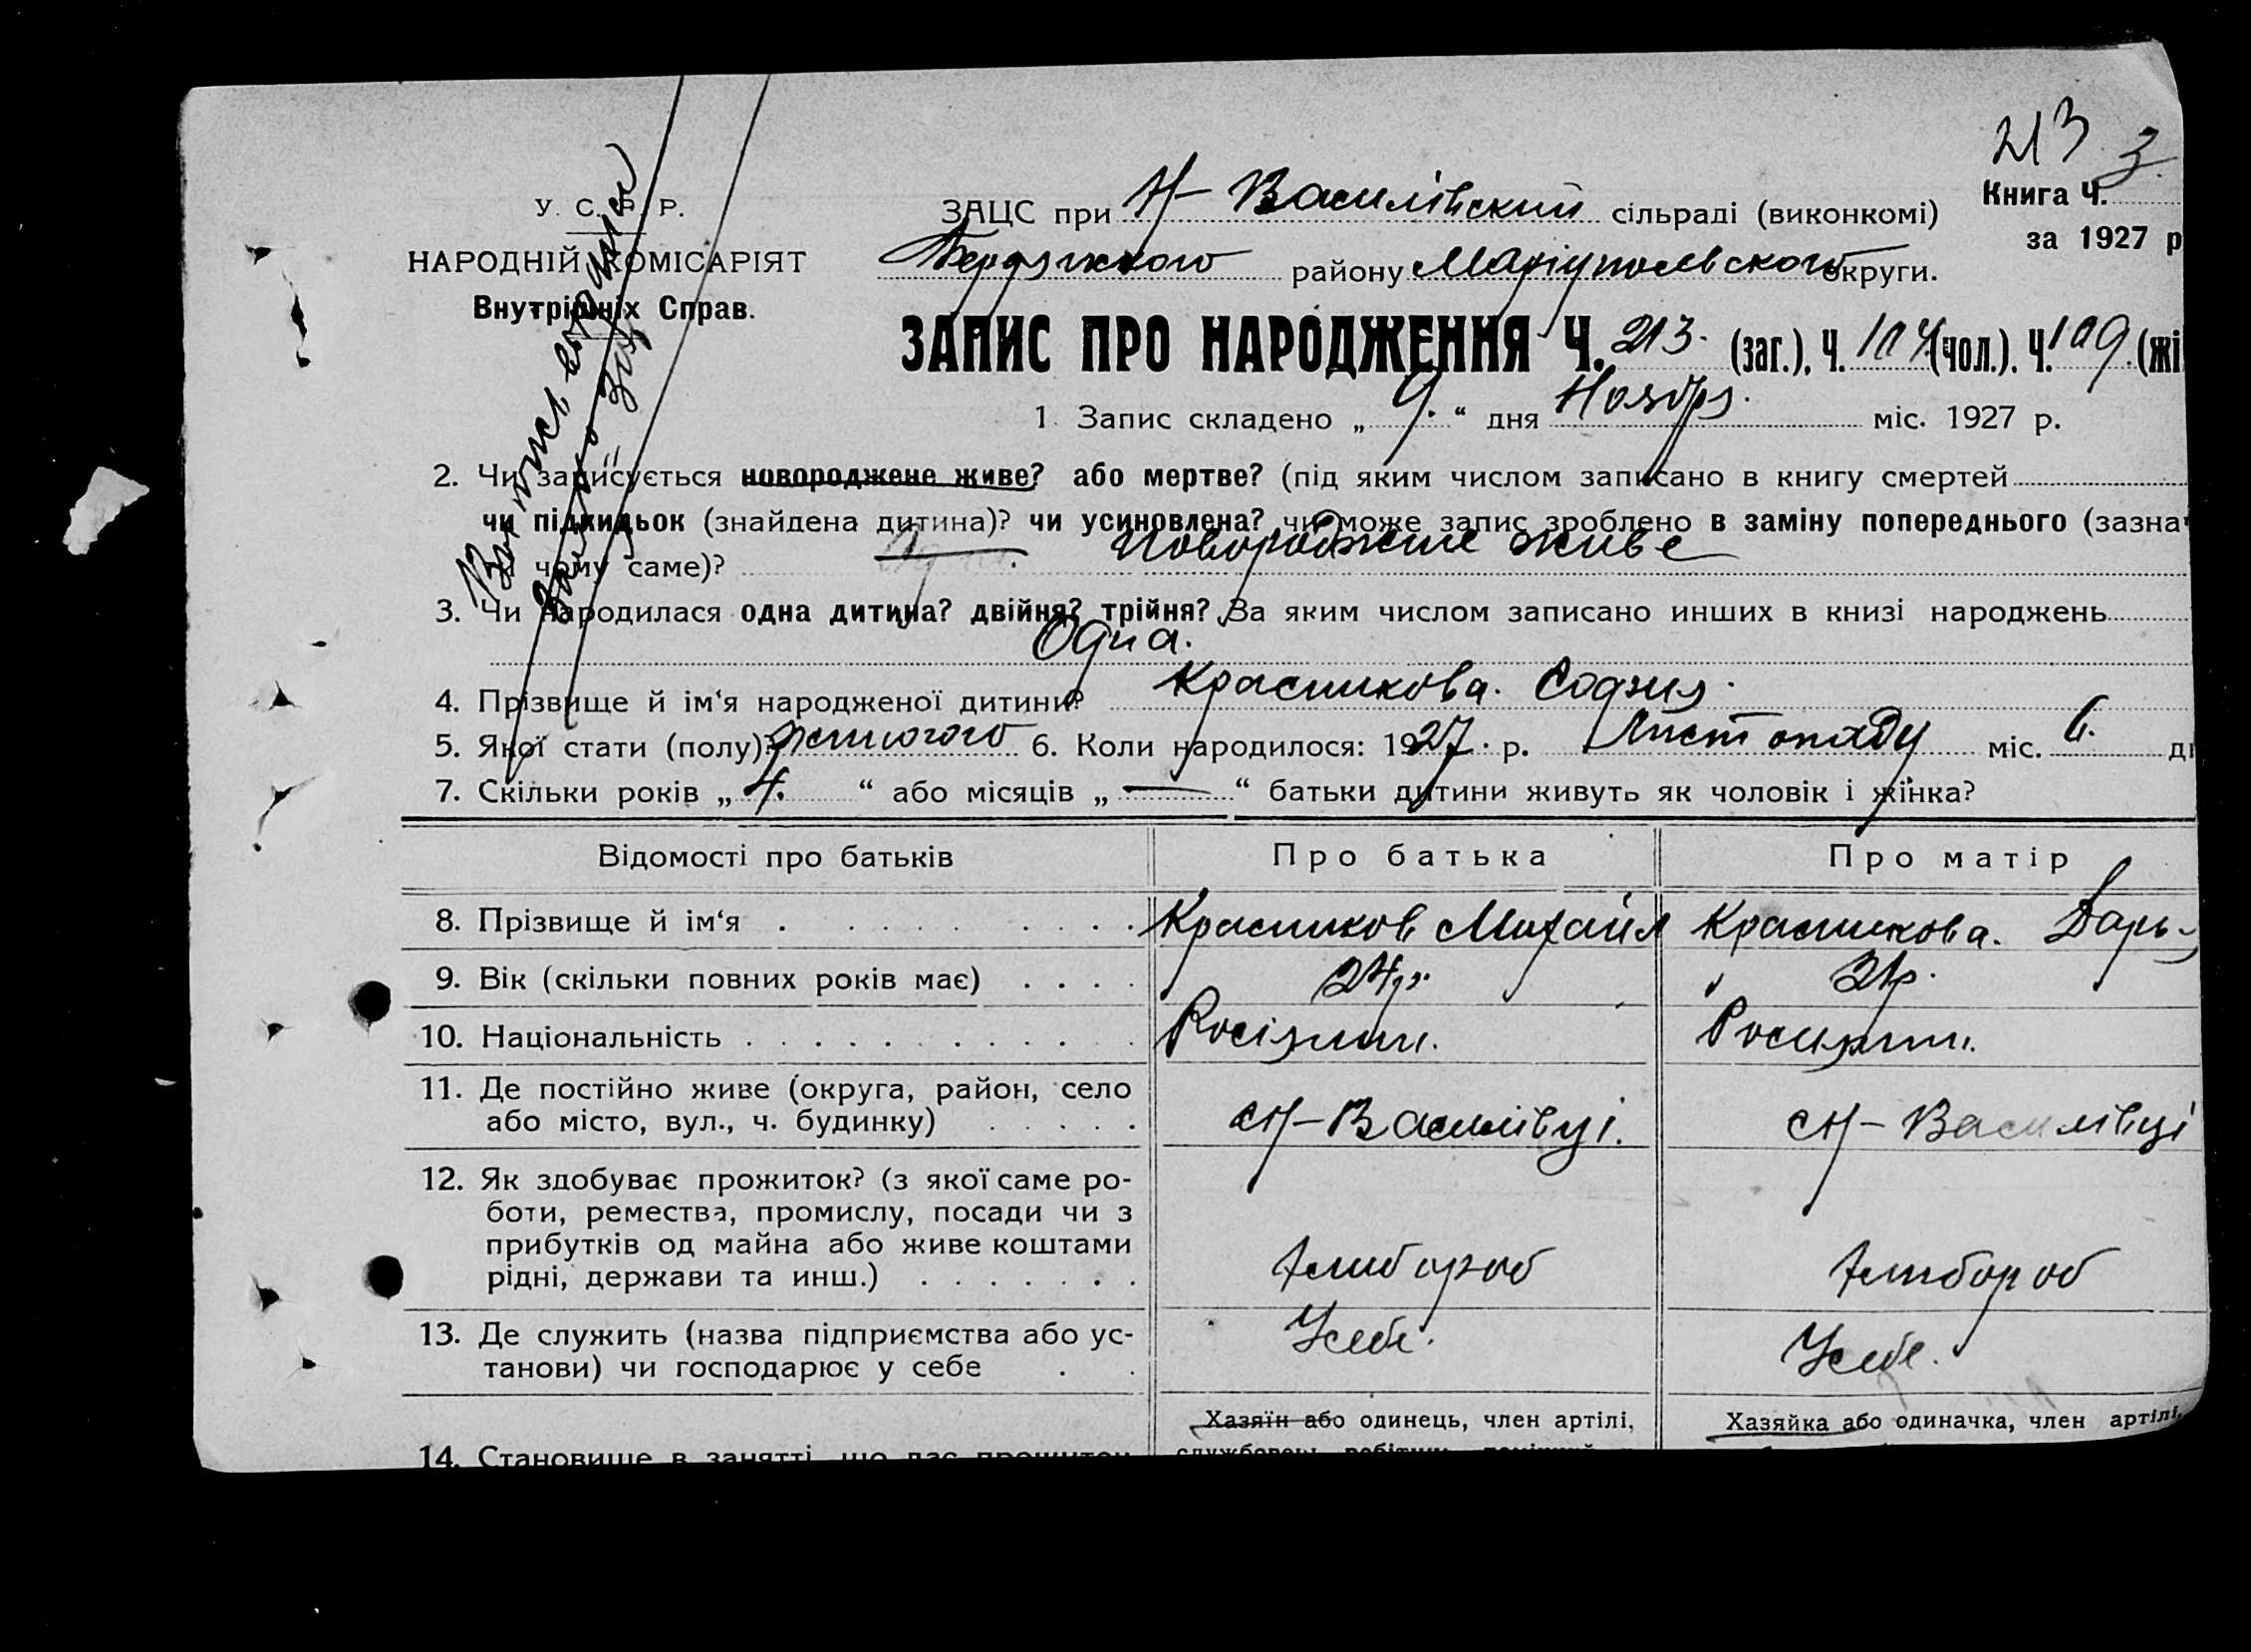 213
3.
У. С. Р. Р.
НАРОДНІЙ КОМІСАРІЯТ
Внутрішніх Справ.
ЗАЦС при Н-Василівский сільраді (виконкомі)
Книга Ч.
за 1927 р
Бердянского району Маріупольвского округи.
ЗАПИС ПРО НАРОДЖЕННЯ Ч. 213. (заг.), Ч. 104 (чол.). Ч. 109. (жі
1. Запис складено „ 9. “ дня Ноября. міс. 1927 р.
2. Чи записується новороджене живе? або мертве? (під яким числом записано в книгу смертей
чи підкидьок (знайдена дитина)? чи усиновлена? чи може запис зроблено в заміну попереднього (зазна
ти чому саме)? Новорожене живе
3. Чи народилася одна дитина? двійня? трійня? За яким числом записано инших в книзі народжень
Одна.
4. Прізвище й ім‘я народженої дитини? Красникова. София.
5. Якої стати (полу)? женского 6. Коли народилося: 1927. р. Листопаду міс. 6. д
7. Скільки років „ 4. “ або місяців „ — “ батьки дитини живуть як чоловік і жінка?
Відомості про батьків
Про батька
Про матір
8. Прізвище й ім‘я
Красников Михайл
Красникова. Дарья
9. Вік (скільки повних років має)
24р.
21р.
10. Національність
Росіянин.
Росиянин.
11. Де постійно живе (округа, район, село
або місто, вул., ч. будинку)
Н-Василівці.
Н-Василівці
12. Як здобуває прожиток? (з якої саме ро-
боти, ремества, промислу, посади чи з
прибутків од майна або живе коштами
рідні, держави та инш.)
хлибороб
хлибороб
13. Де служить (назва підприємства або ус-
танови) чи господарює у себе
Усебе.
Усебе.
14. Становище в занятті, що дає прожиток
Хазяїн або одинець, член артілі,
Хазяйка або одиначка, член артілі,